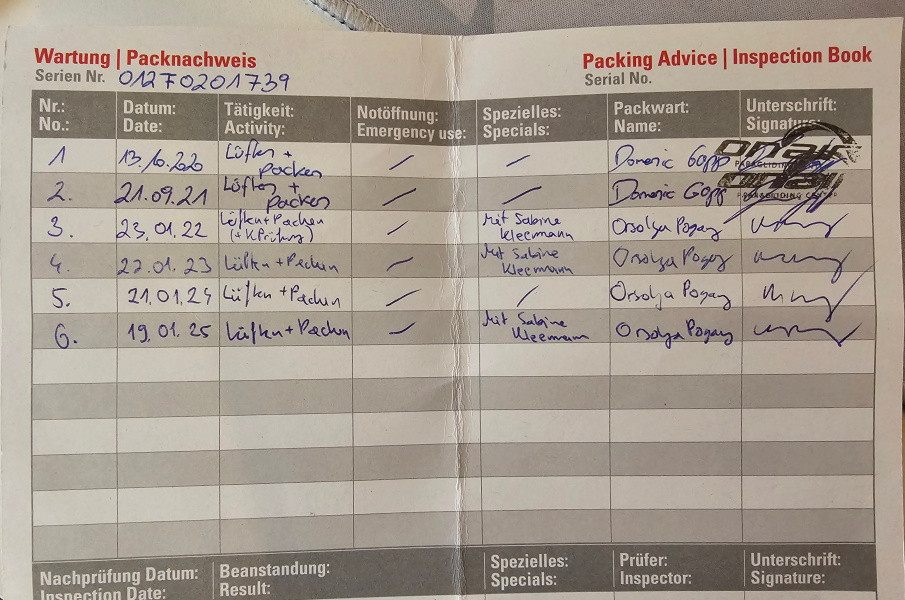 Wartung | Packnachweis
Serien Nr. 01270201739
Packing Advice | Inspection Book
Serial No.
Nr.: Datum: Tätigkeit: Notöffnung: Spezielles: Packwart: Unterschrift:
No.: Date: Activity: Emergency use: Specials: Name: Signature:
1 13.10.2020 Lüften + packen / / Domenic Gopp
onair
PARAGLIDING
2. 21.09.21 Lüften + packen / / Domenic Gopp
onair
PARAGLIDING CENTER
3. 23.01.22 Lüften + Packen / Mit Sabine Orsolya Pogany
(+ K.Prüfung) Kleemann
4. 22.01.23 Lüften + Packen / Mit Sabine Orsolya Pogany
Kleemann
5. 21.01.24 Lüften + Packen / / Orsolya Pogany
6. 19.01.25 Lüften + Packen / Mit Sabine Orsolya Pogany
Kleemann
Nachprüfung Datum: Beanstandung: Spezielles: Prüfer: Unterschrift:
Inspection Date: Result: Specials: Inspector: Signature: